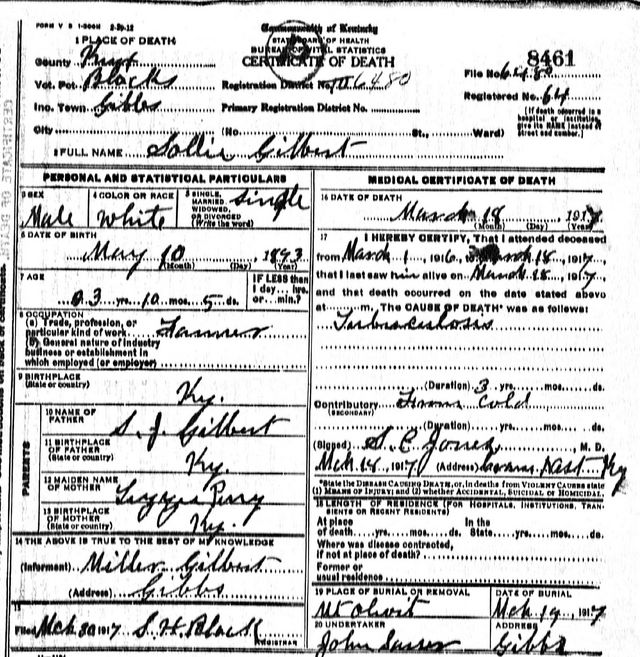 FORM V S 1-300M 2-20-12
Commonwealth of Kentucky
STATE BOARD OF HEALTH
BUREAU OF VITAL STATISTICS
CERTIFICATE OF DEATH
8461
1 PLACE OF DEATH
County Knox
Vot. Pct. Blacks
Inc. Town Gibbs
City
Registration District No. 6480
Primary Registration District No.
File No. 6480
Registered No. 64
(If death occurred in a hospital or institution, give its NAME instead of street and number.)
(No. St., Ward)
2 FULL NAME Sollie Gilbert
PERSONAL AND STATISTICAL PARTICULARS
3 SEX
Male
4 COLOR OR RACE
White
5 SINGLE, MARRIED, WIDOWED, OR DIVORCED
(Write the word)
Single
6 DATE OF BIRTH
May 10 1893
(Month) (Day) (Year)
7 AGE
23 yrs. 10 mos. 5 ds.
IF LESS than
1 day... hrs.
or... min.?
8 OCCUPATION
(a) Trade, profession, or
particular kind of work Farmer
(b) General nature of industry
business or establishment in
which employed (or employer)
9 BIRTHPLACE
(State or country)
Ky.
PARENTS
10 NAME OF
FATHER
S. J. Gilbert
11 BIRTHPLACE
OF FATHER
(State or country)
Ky.
12 MAIDEN NAME
OF MOTHER
Perry
13 BIRTHPLACE
OF MOTHER
(State or country)
Ky.
14 THE ABOVE IS TRUE TO THE BEST OF MY KNOWLEDGE
(Informant) Miller Gilbert
(Address) Gibbs
15
Filed Mch 30 1917 S. H. Black
REGISTRAR
MEDICAL CERTIFICATE OF DEATH
16 DATE OF DEATH
March 18, 1917
(Month) (Day) (Year)
17 I HEREBY CERTIFY, That I attended deceased
from March 1, 1916, to March 18, 1917,
that I last saw him alive on March 18, 1917,
and that death occurred on the date stated above
at m. The CAUSE OF DEATH* was as follows:
Tuberculosis
(Duration) 3 yrs. mos. ds.
Contributory From Cold
(SECONDARY)
(Duration) yrs. mos. ds.
(Signed) S. C. Jones, M. D.
Mch 18, 1917 (Address) Ky
*State the DISEASE CAUSING DEATH, or, in deaths from VIOLENT CAUSES state
(1) MEANS OF INJURY; and (2) whether ACCIDENTAL, SUICIDAL or HOMICIDAL.
18 LENGTH OF RESIDENCE (FOR HOSPITALS, INSTITUTIONS, TRANSIENTS OR RECENT RESIDENTS)
At place In the
of death yrs. mos. ds. State yrs. mos. ds.
Where was disease contracted,
if not at place of death?
Former or
usual residence
19 PLACE OF BURIAL OR REMOVAL
Mt Olivit
DATE OF BURIAL
Mch 19 1917
20 UNDERTAKER
John
ADDRESS
Gibbs